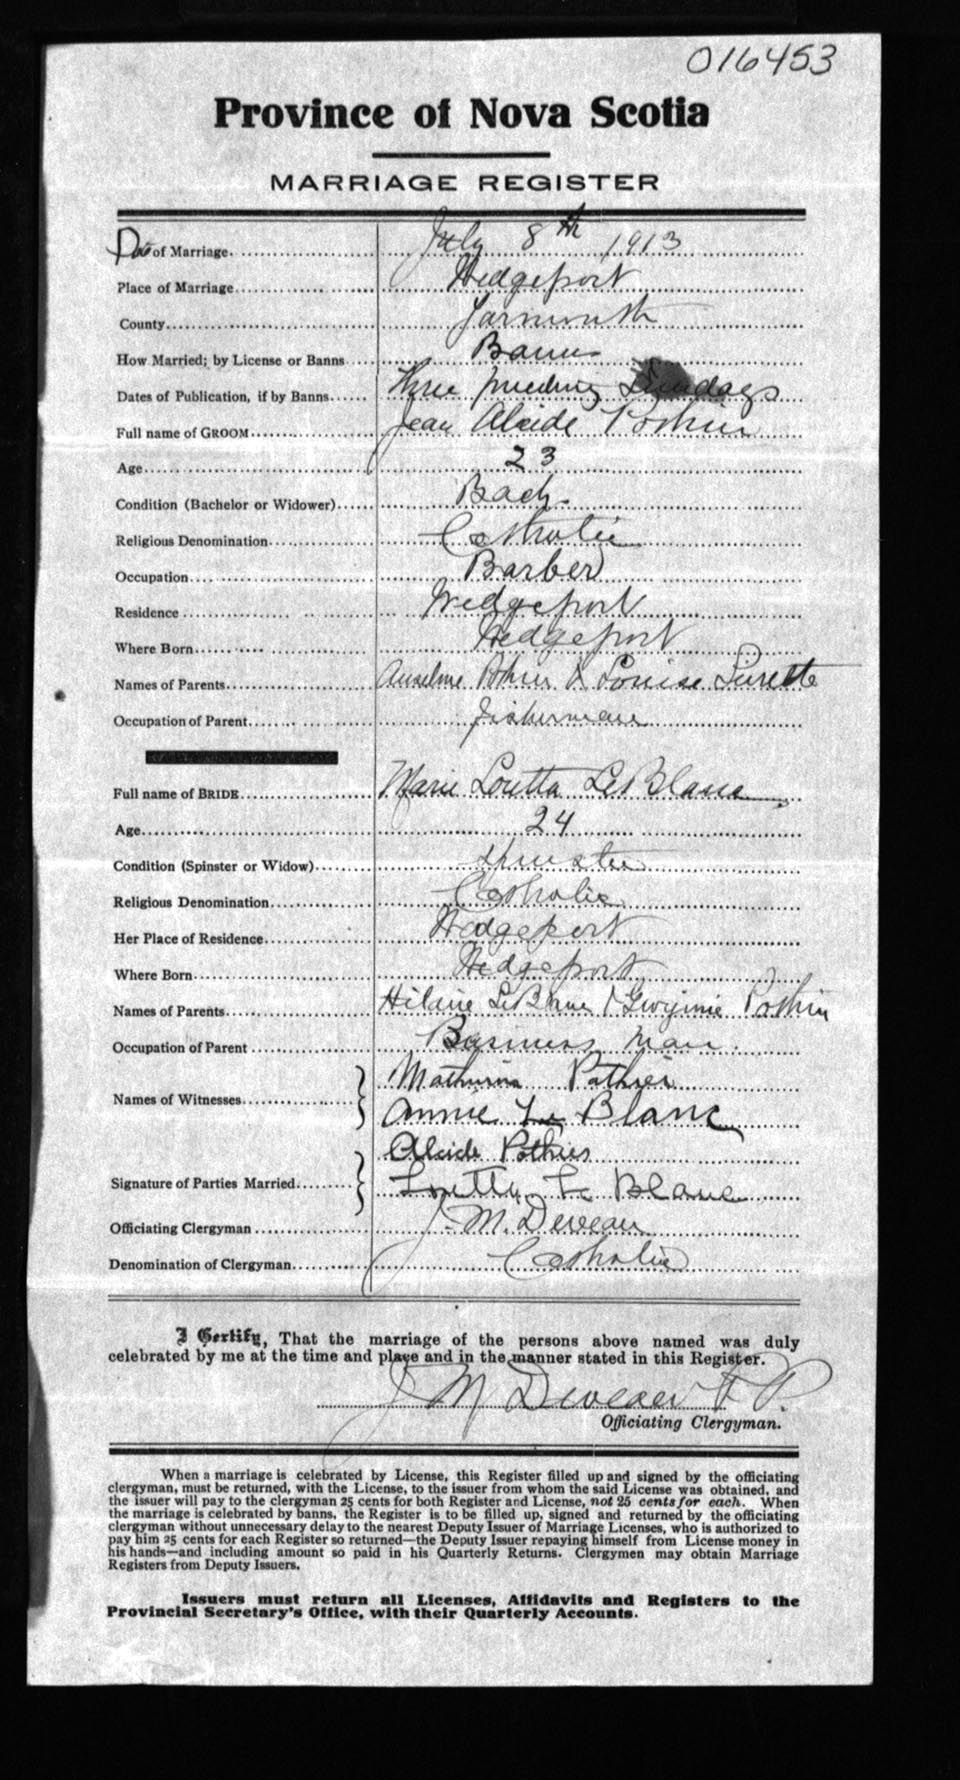 016453
Province of Nova Scotia
MARRIAGE REGISTER
Date of Marriage July 8th 1913
Place of Marriage Wedgeport
County Yarmouth
How Married; by License or Banns Banns
Dates of Publication, if by Banns three preceding Sundays
Full name of GROOM Jean Alcide Pothier
Age 23
Condition (Bachelor or Widower) Bach.
Religious Denomination Catholic
Occupation Barber
Residence Wedgeport
Where Born Wedgeport
Names of Parents Anselme Pothier & Louise Surette
Occupation of Parent fisherman
Full name of BRIDE Marie Loretta LeBlanc
Age 24
Condition (Spinster or Widow) spinster
Religious Denomination Catholic
Her Place of Residence Wedgeport
Where Born Wedgeport
Names of Parents Hilaire LeBlanc & Pothier
Occupation of Parent Business man.
Names of Witnesses Mathurin Pothier
Annie Le Blanc
Alcide Pothier
Signature of Parties Married Loretta Le Blanc
Officiating Clergyman J. M. Deveau
Denomination of Clergyman Catholic
I Certify, That the marriage of the persons above named was duly
celebrated by me at the time and place and in the manner stated in this Register.
J M Deveau P.P.
Officiating Clergyman.
When a marriage is celebrated by License, this Register filled up and signed by the officiating
clergyman, must be returned, with the License, to the issuer from whom the said License was obtained, and
the issuer will pay to the clergyman 25 cents for both Register and License, not 25 cents for each. When
the marriage is celebrated by banns, the Register is to be filled up, signed and returned by the officiating
clergyman without unnecessary delay to the nearest Deputy Issuer of Marriage Licenses, who is authorized to
pay him 25 cents for each Register so returned—the Deputy Issuer repaying himself from License money in
his hands—and including amount so paid in his Quarterly Returns. Clergymen may obtain Marriage
Registers from Deputy Issuers.
Issuers must return all Licenses, Affidavits and Registers to the
Provincial Secretary's Office, with their Quarterly Accounts.